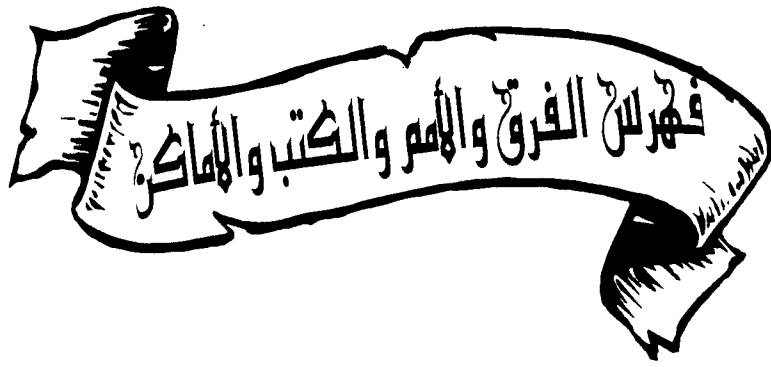 فهرس الفرق والأمم والكتب والأماكن